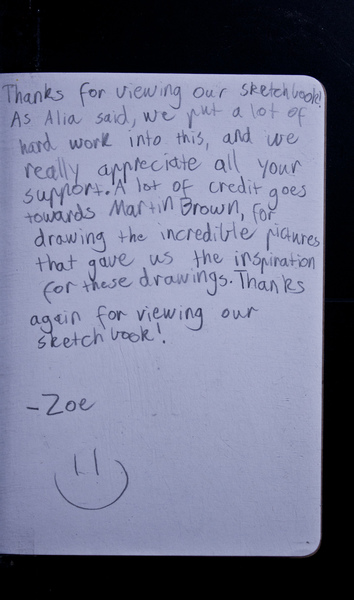 Thanks for viewing our sketchbook!
As Alia said, we put a lot of
hard work into this, and we
really appreciate all your
support. A lot of credit goes
towards Martin Brown, for
drawing the incredible pictures
that gave us the inspiration
for these drawings. Thanks
again for viewing our
sketchbook!
-Zoe